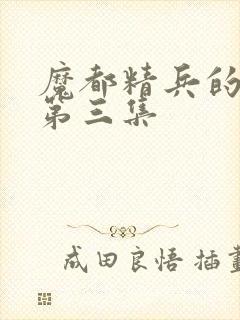 魔都精兵的
第三集
成田良悟 插畫